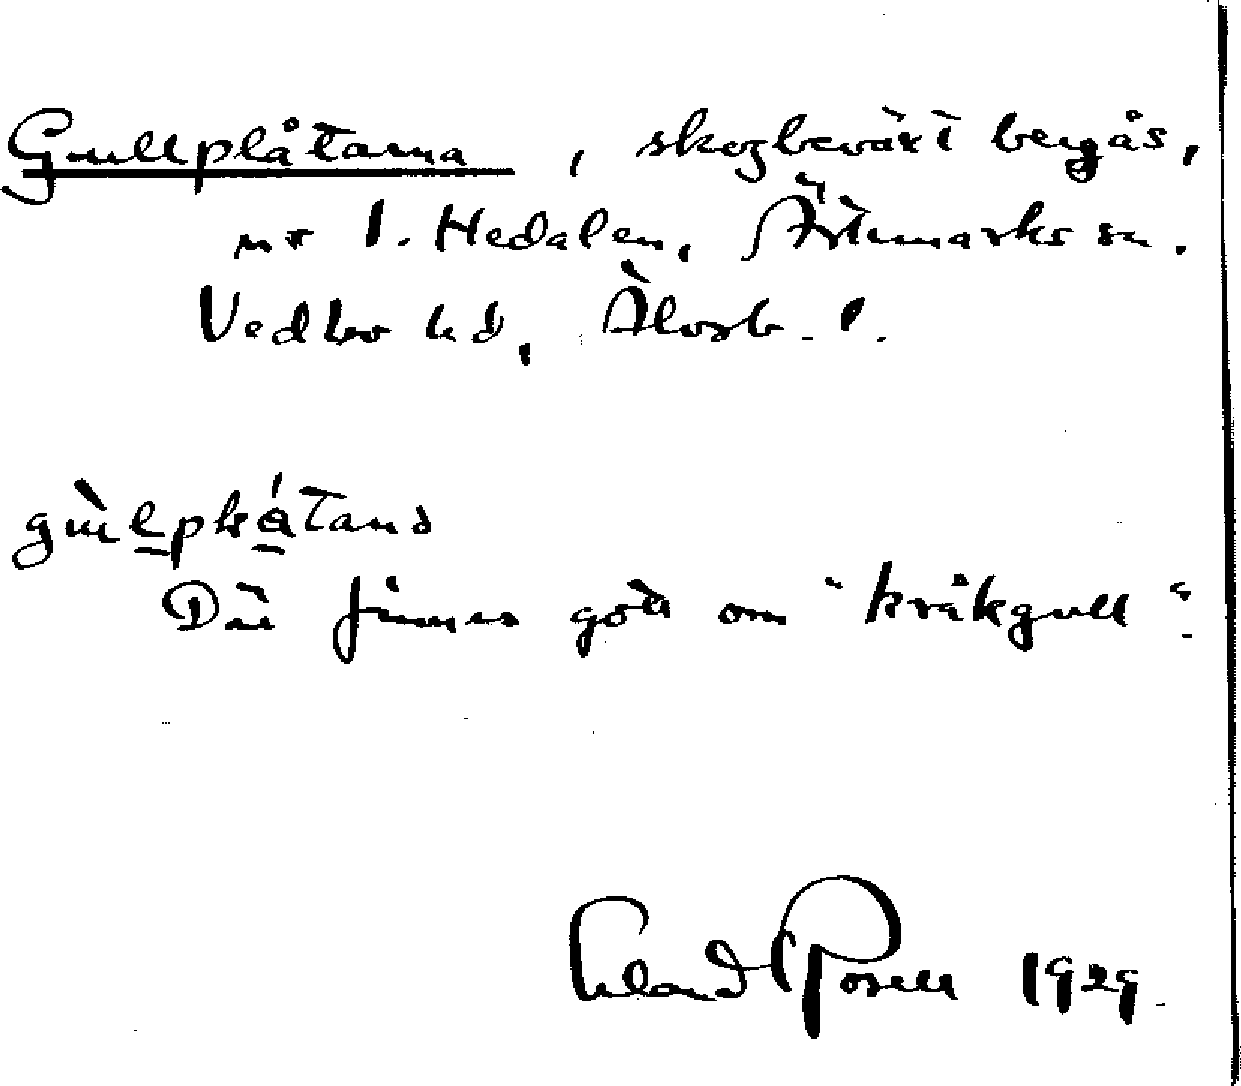 Gullplåtarna, skogbeväxt bergås,
nr 1. Hedalen, Ärtemarks sn.
Vedbo hd, Älvsb. l.
Där finnes gott om "kråkgull".
Erland Rosell 1929.